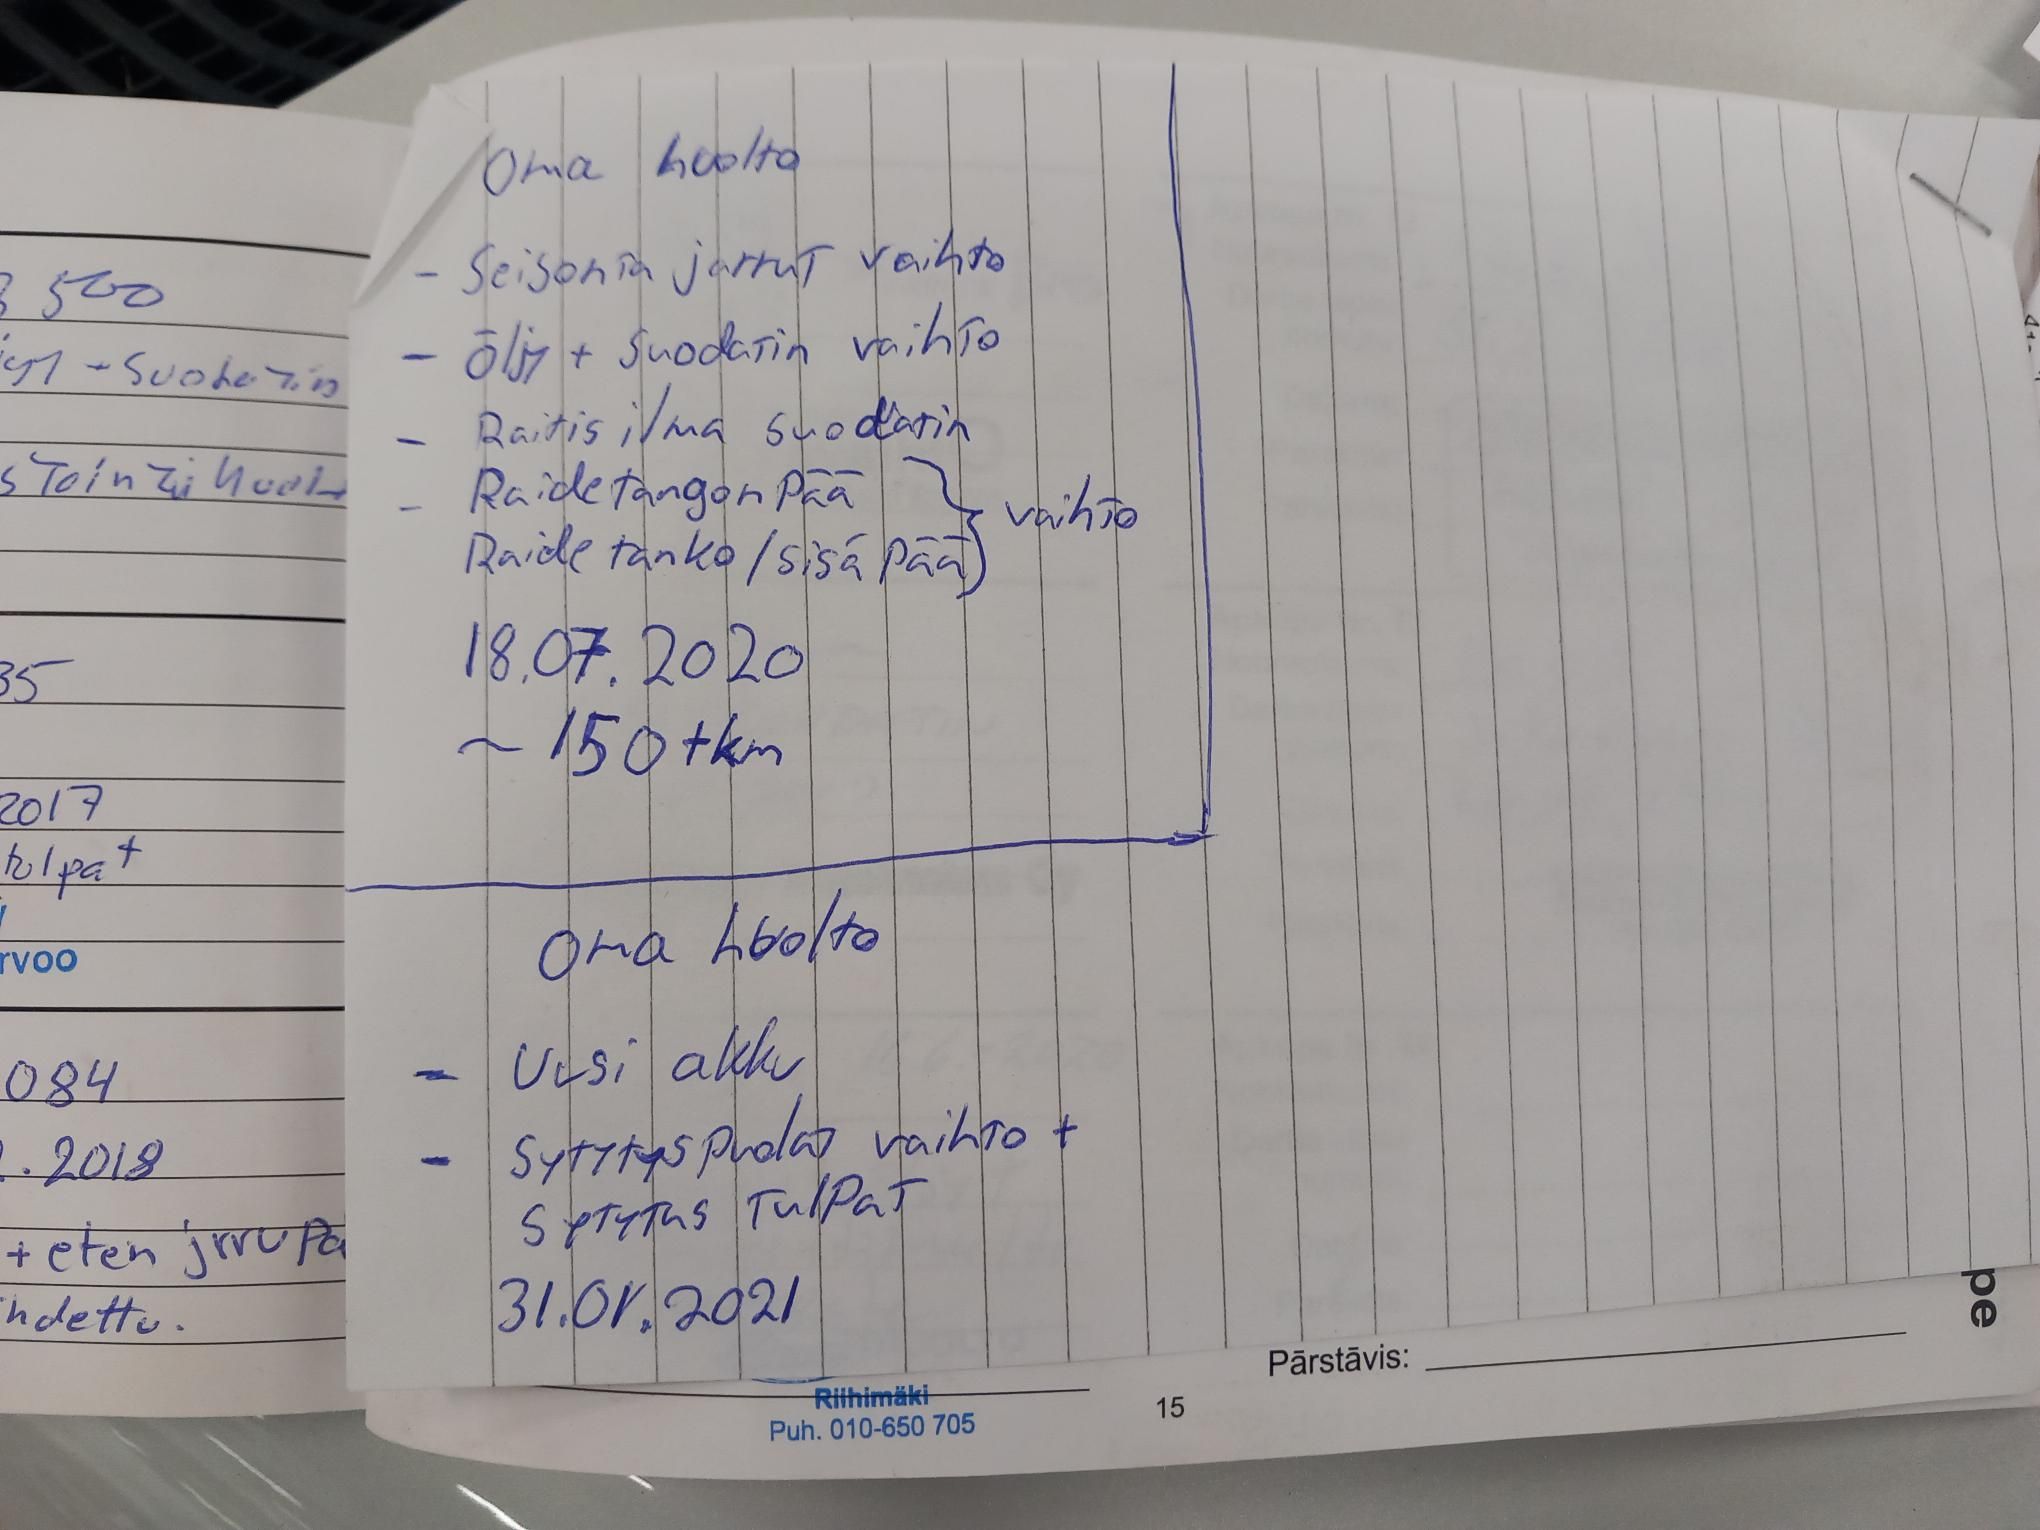 3 500
- suodatin
35
2017
tulpat
rvoo
084
. 2018
+ eten jrru Pa
hdettu.
Oma huolto
- Seisonta jarrut vaihto
- Öljy + suodatin vaihto
- Raitis ilma suodatin
- Raidetangon Pää
Raide tanko / sisä Pää
vaihto
18.07.2020
~ 150 tkm
Oma huolto
- Uusi akku
- SytytysPuolat vaihto +
Sytytys TulPaT
31.01.2021
Riihimäki
Puh. 010-650 705
15
Pārstāvis:
pe